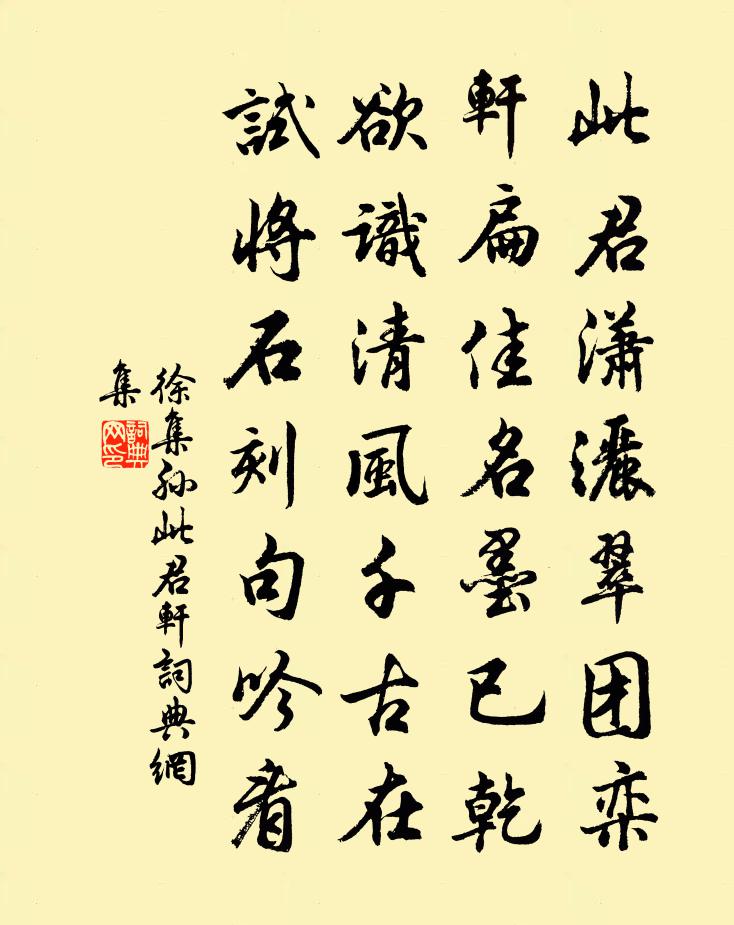 此君瀟灑翠团栾
軒扁佳名墨已乾
欲識清風千古在
試將石刻句吟看
徐集孙此君軒詞典網
集
詞典網印